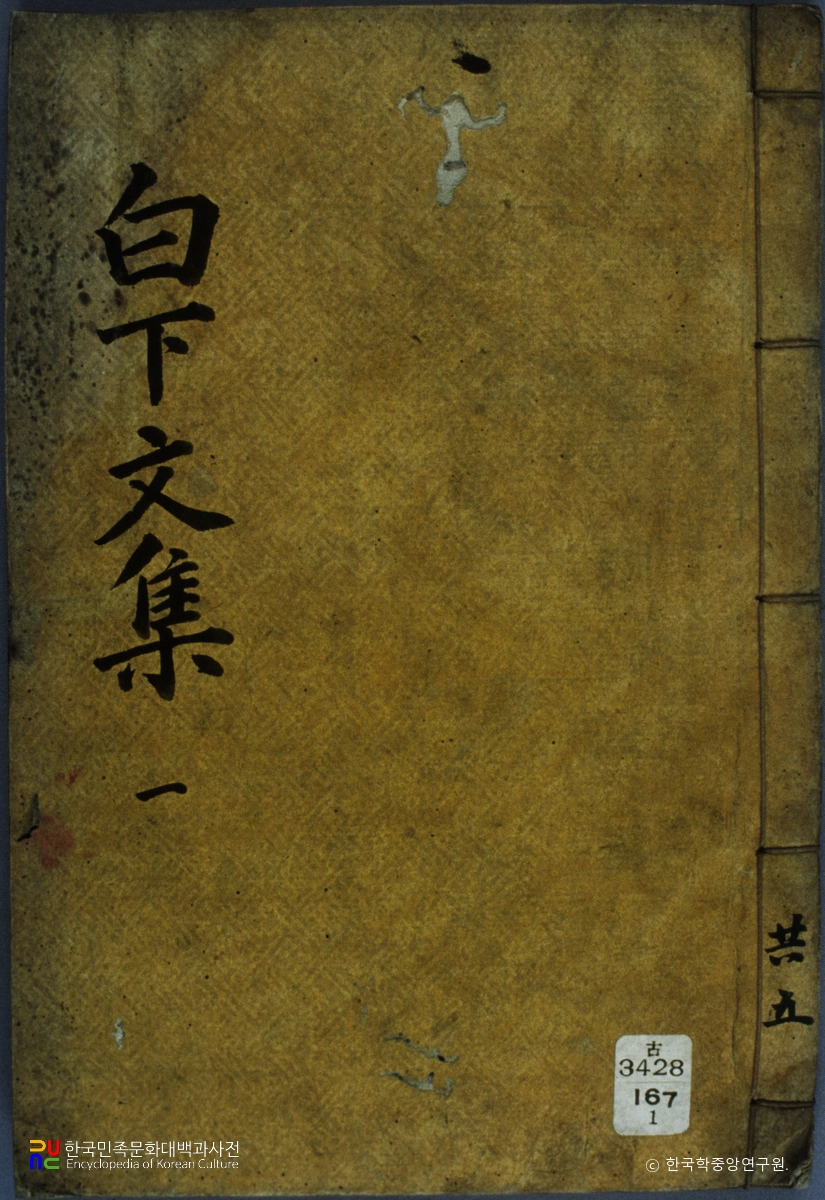 白下文集 一
共五
古
3428
167
1
한국민족문화대백과사전
Encyclopedia of Korean Culture
© 한국학중앙연구원.